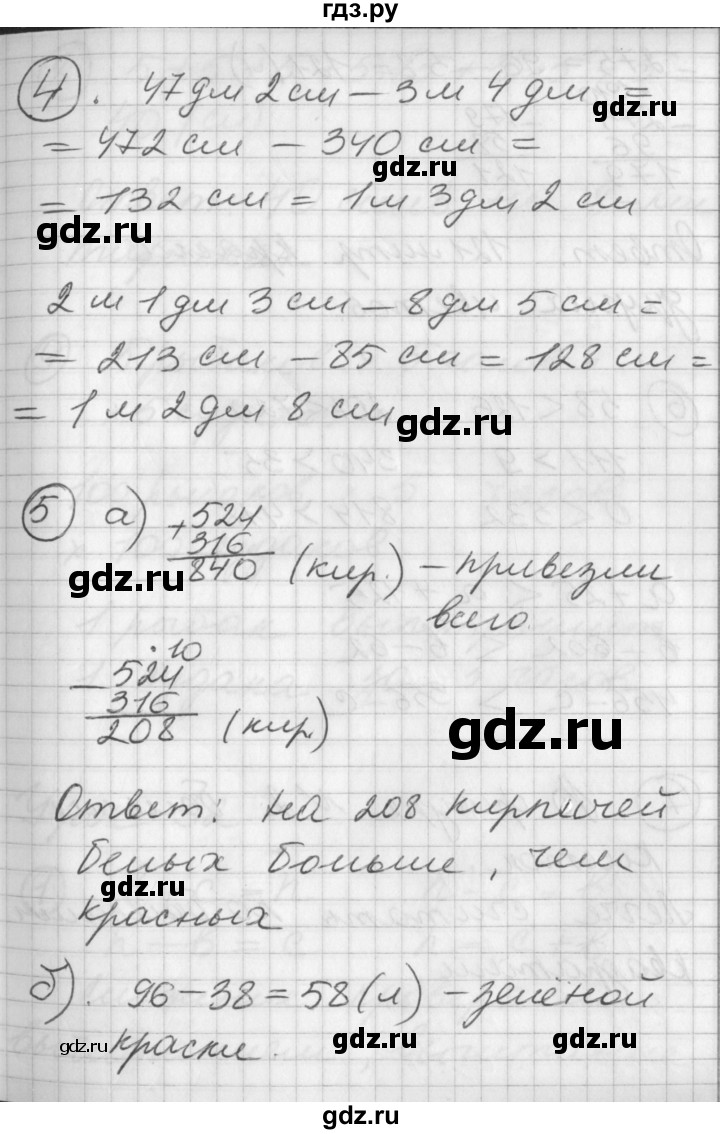 гдз.ру
4. 47 дм 2 см – 3 м 4 дм =
gdz.ru
= 472 см – 340 см =
gdz.ru
= 132 см = 1 м 3 дм 2 см
gdz.ru
2 м 1 дм 3 см – 8 дм 5 см =
= 213 см – 85 см = 128 см =
= 1 м 2 дм 8 см
gdz.ru
5 а) + 524
316
840 (кир.) – привезли
gdz.ru
всего.
· 10
– 524
316
208 (кир.)
gdz.ru
Ответ: на 208 кирпичей
белых больше, чем
gdz.ru
красных
б). 96 – 38 = 58 (л) – зелёной
краски.
gdz.ru
gdz.ru
gdz.ru
gdz.ru